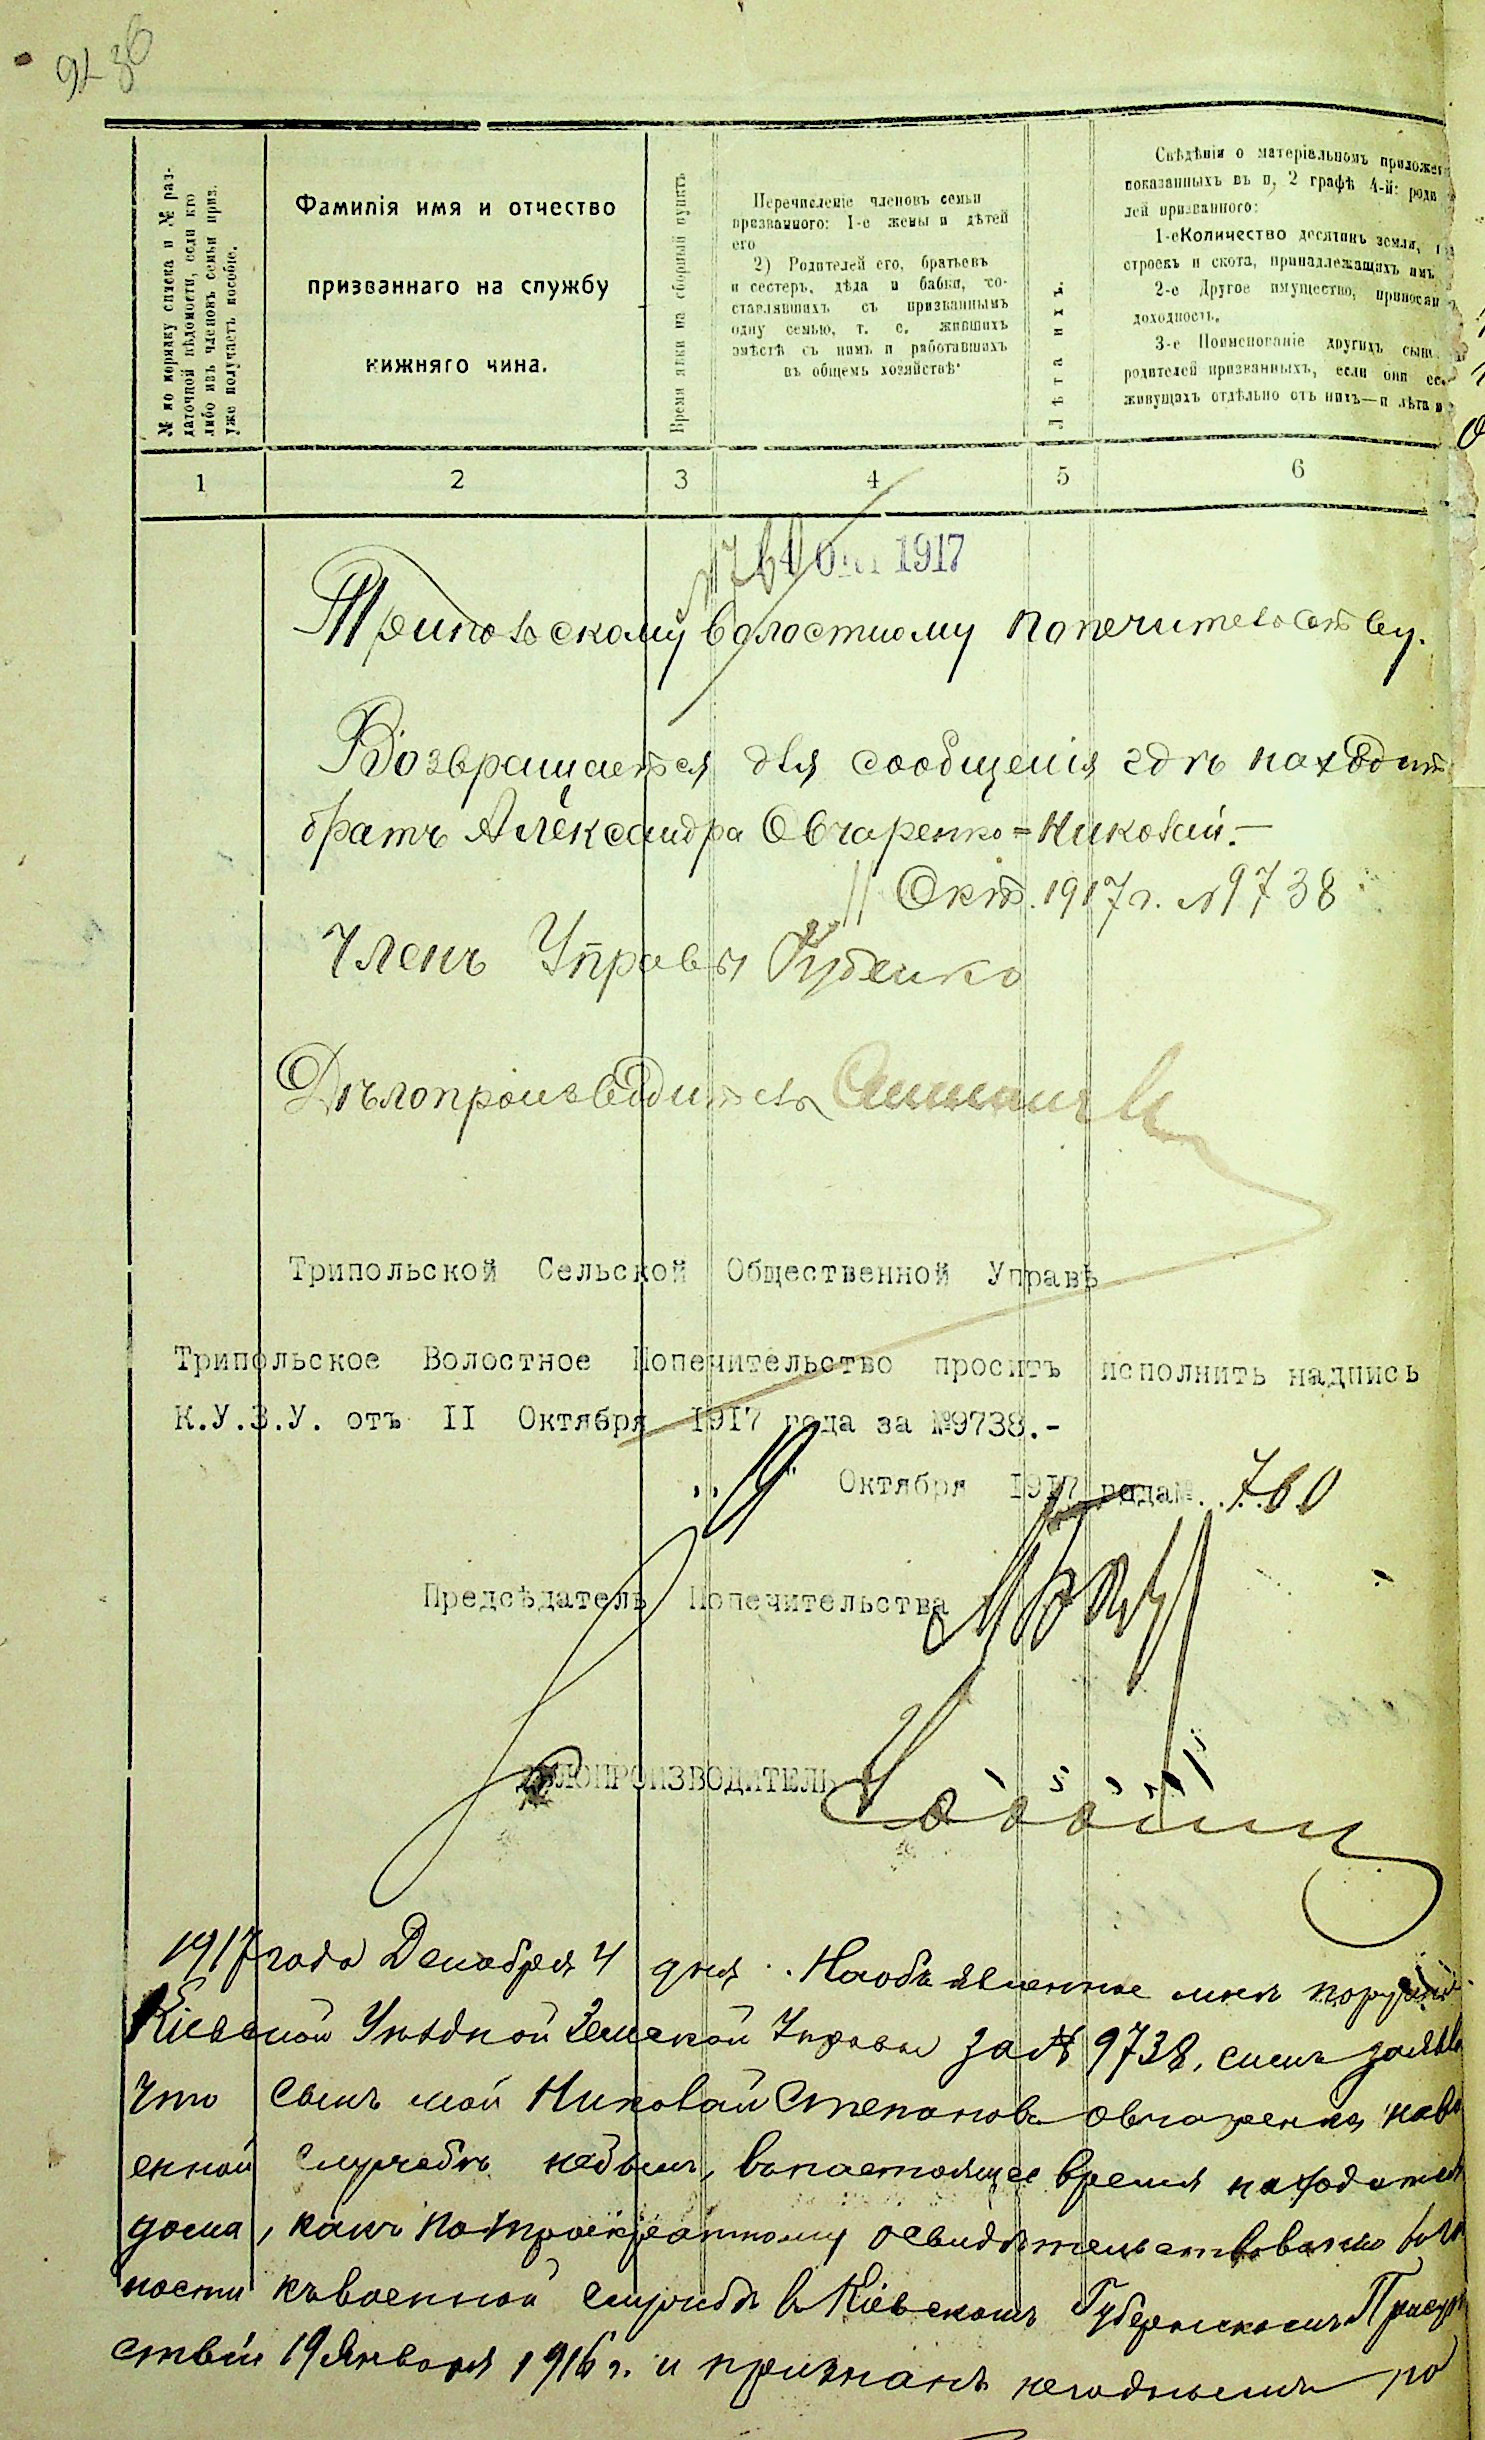 № по порядку списка и № раз-
даточной вѣдомости, если кто
либо изъ членовъ семьи приз.
уже получаетъ пособіе.
Фамилія имя и отчество
призваннаго на службу
нижняго чина.
Время явки на сборный пунктъ
Перечисленіе членовъ семьи
призваннаго: 1-е жены и дѣтей
его
2) Родителей его, братьевъ
и сестеръ, дѣда и бабки, со-
ставлявшихъ съ призваннымъ
одну семью, т. е. жившихъ
вмѣстѣ съ нимъ и работавшихъ
въ общемъ хозяйствѣ
Лѣта ихъ.
Свѣдѣнія о матеріальномъ
показанныхъ въ п. 2 графѣ 4-й: роди
лей призваннаго:
1-е Количество десятинъ земли,
строекъ и скота, принадлежащихъ имъ
2-е Другое имущество,
доходность.
3-е Поименованіе другихъ
родителей призванныхъ, если они
живущихъ отдѣльно отъ нихъ—и лѣта
1 2 3 4 5 6
№760 Окт 1917
Трипольскому волостному попечительству.
Возвращается для сообщенія гдѣ находит
братъ Александра Овчаренко=Николай.—
11 Окт. 1917 г. №9738
Членъ Управы
Дѣлопроизводитель
Трипольской Сельской Общественной Управѣ
Трипольское Волостное Попечительство проситъ исполнить надпись
К.У.З.У. отъ II Октября 1917 года за №9738.-
„19" Октября 1917 года№ 760
Предсѣдатель Попечительства
ДѢЛОПРОИЗВОДИТЕЛЬ
1917 года Декабря 4 дня. На объявленное мнѣ
Кіевской Уѣздной Земской Управы за № 9738, симъ заявл
что сынъ мой Николай Степановъ Овчаренко на во
енной службѣ небылъ, въ настоящее время находится
дома, какъ по троекратному освидѣтельствованію
ности къ военной службѣ в Кіевскомъ Губернскомъ Присут
ствіи 19 Января 1916 г. и признанъ негоднымъ по